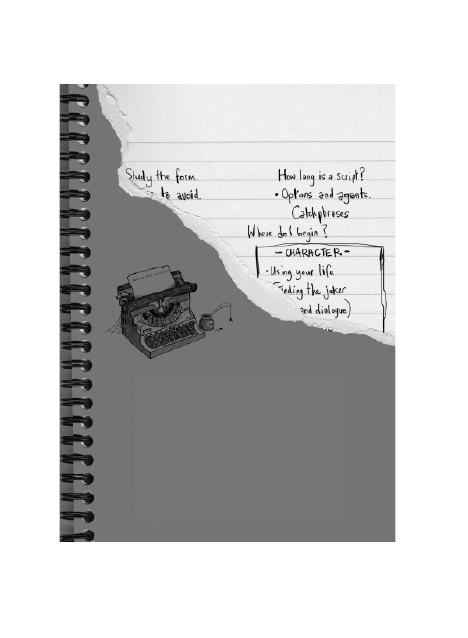 Study the form.
How long is a script?
to avoid.
• Options and agents.
Catchphrases
Where do I begin?
– CHARACTER –
• Using your life
Finding the joker
and dialogue)